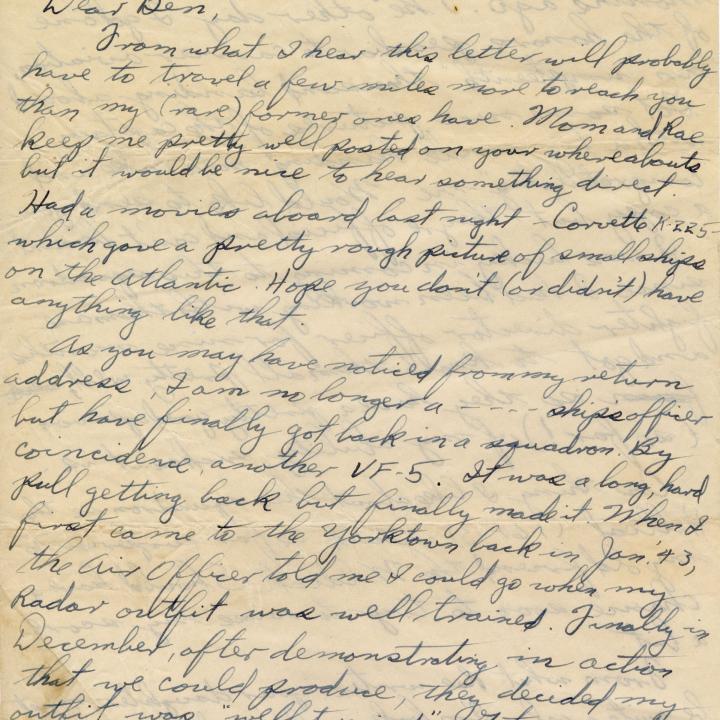 Dear Ben,
From what I hear this letter will probably
have to travel a few miles more to reach you
than my (rare) former ones have. Mom and Rae
keep me pretty well posted on your whereabouts
but it would be nice to hear something direct.
Had a movies aboard last night - Corvette K-225-
which gave a pretty rough picture of small ships
on the Atlantic. Hope you don't (or didn't) have
anything like that.
As you may have noticed from my return
address, I am no longer a ---- ship's officer
but have finally got back in a squadron. By
coincidence, another VF-5. It was a long, hard
pull getting back but finally made it. When I
first came to the Yorktown back in Jan. '43,
the Air Officer told me I could go when my
Radar outfit was well trained. Finally in
December, after demonstrating in action
that we could produce, they decided my
outfit was "well trained".